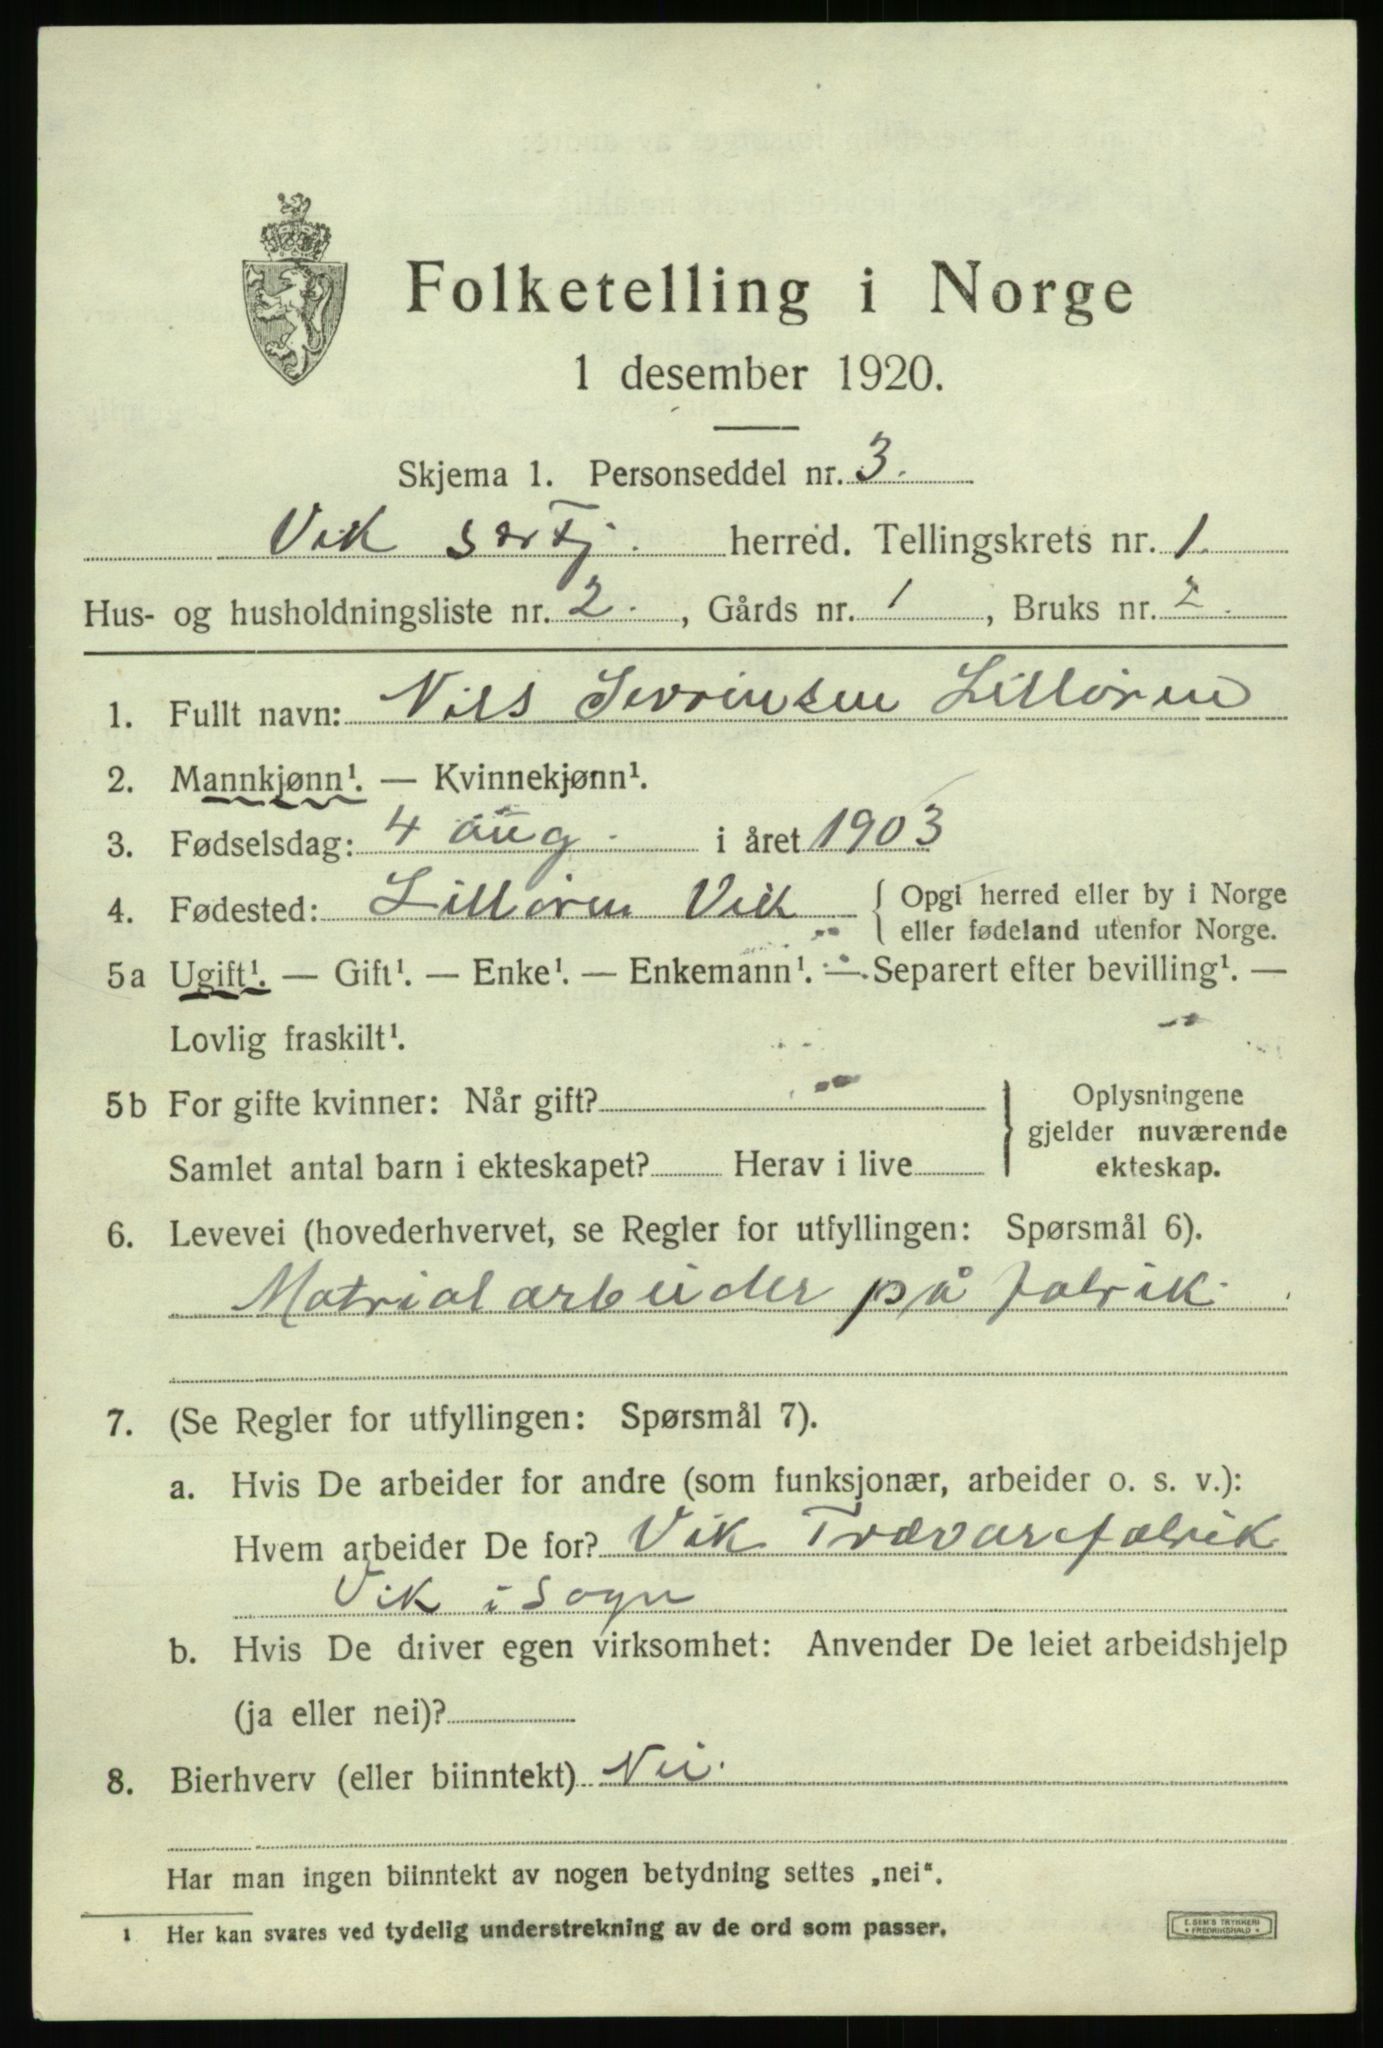 Folketelling i Norge
1 desember 1920.
Skjema 1. Personseddel nr. 3.
Vik herred. Tellingskrets nr. 1.
Hus- og husholdningsliste nr. 2. , Gårds nr. 1 , Bruks nr. 2.
1. Fullt navn: Nils Sevrinsen Lilløren
2. Mannkjønn¹. — Kvinnekjønn¹.
3. Fødselsdag: 4 aug. i året 1903
4. Fødested: Lilløren Vik { Opgi herred eller by i Norge
eller fødeland utenfor Norge.
5a Ugift¹. — Gift¹. — Enke¹. — Enkemann¹. — Separert efter bevilling¹. —
Lovlig fraskilt¹.
5b For gifte kvinner: Når gift?
Samlet antal barn i ekteskapet? Herav i live
Oplysningene
gjelder nuværende
ekteskap.
6. Levevei (hovederhvervet, se Regler for utfyllingen: Spørsmål 6).
Matrialarbeider på fabrik.
7. (Se Regler for utfyllingen: Spørsmål 7).
a. Hvis De arbeider for andre (som funksjonær, arbeider o. s. v.):
Hvem arbeider De for? Vik Trævarefabrik
Vik i Sogn
b. Hvis De driver egen virksomhet: Anvender De leiet arbeidshjelp
(ja eller nei)?
8. Bierhverv (eller biinntekt) Nei.
Har man ingen biinntekt av nogen betydning settes „nei“.
1 Her kan svares ved tydelig understrekning av de ord som passer.
E. SEM'S TRYKKERI
• FREDRIKSHALD •